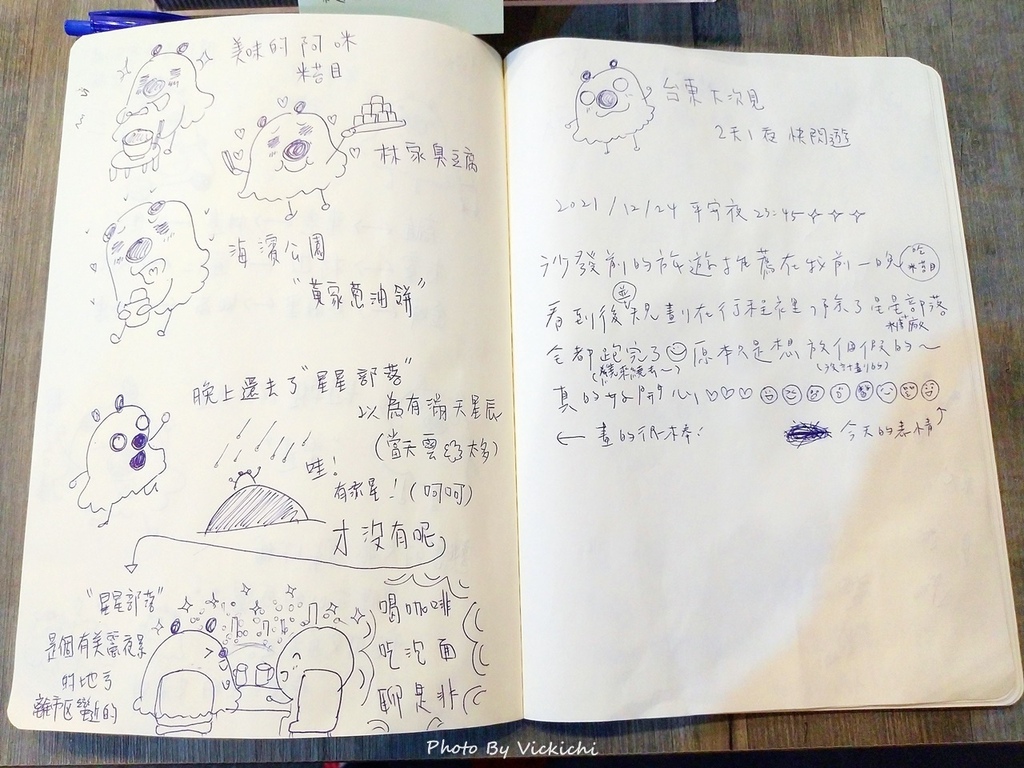 美味的阿咪
米苔目
林家臭豆腐
海濱公園
"黃家蔥油餅"
晚上還去了"星星部落"
以為有滿天星辰
(當天雲太多)
哇!
有流星!(呵呵)
才沒有呢
"星星部落"
是個有美麗夜景
的地方
離市區蠻近的
喝咖啡
吃泡面
聊是非
台東
2天1夜快閃遊
2021/12/24 平安夜 23:45
沙發前的旅遊推薦在我前一晚
吃
米苔目
看到後並規劃在行程裡,除了星星部落
糖廠
全都跑完了 原本只是想放個假的~
真的好開心!
← 畫的很棒!
今天的表情
Photo By Vickichi